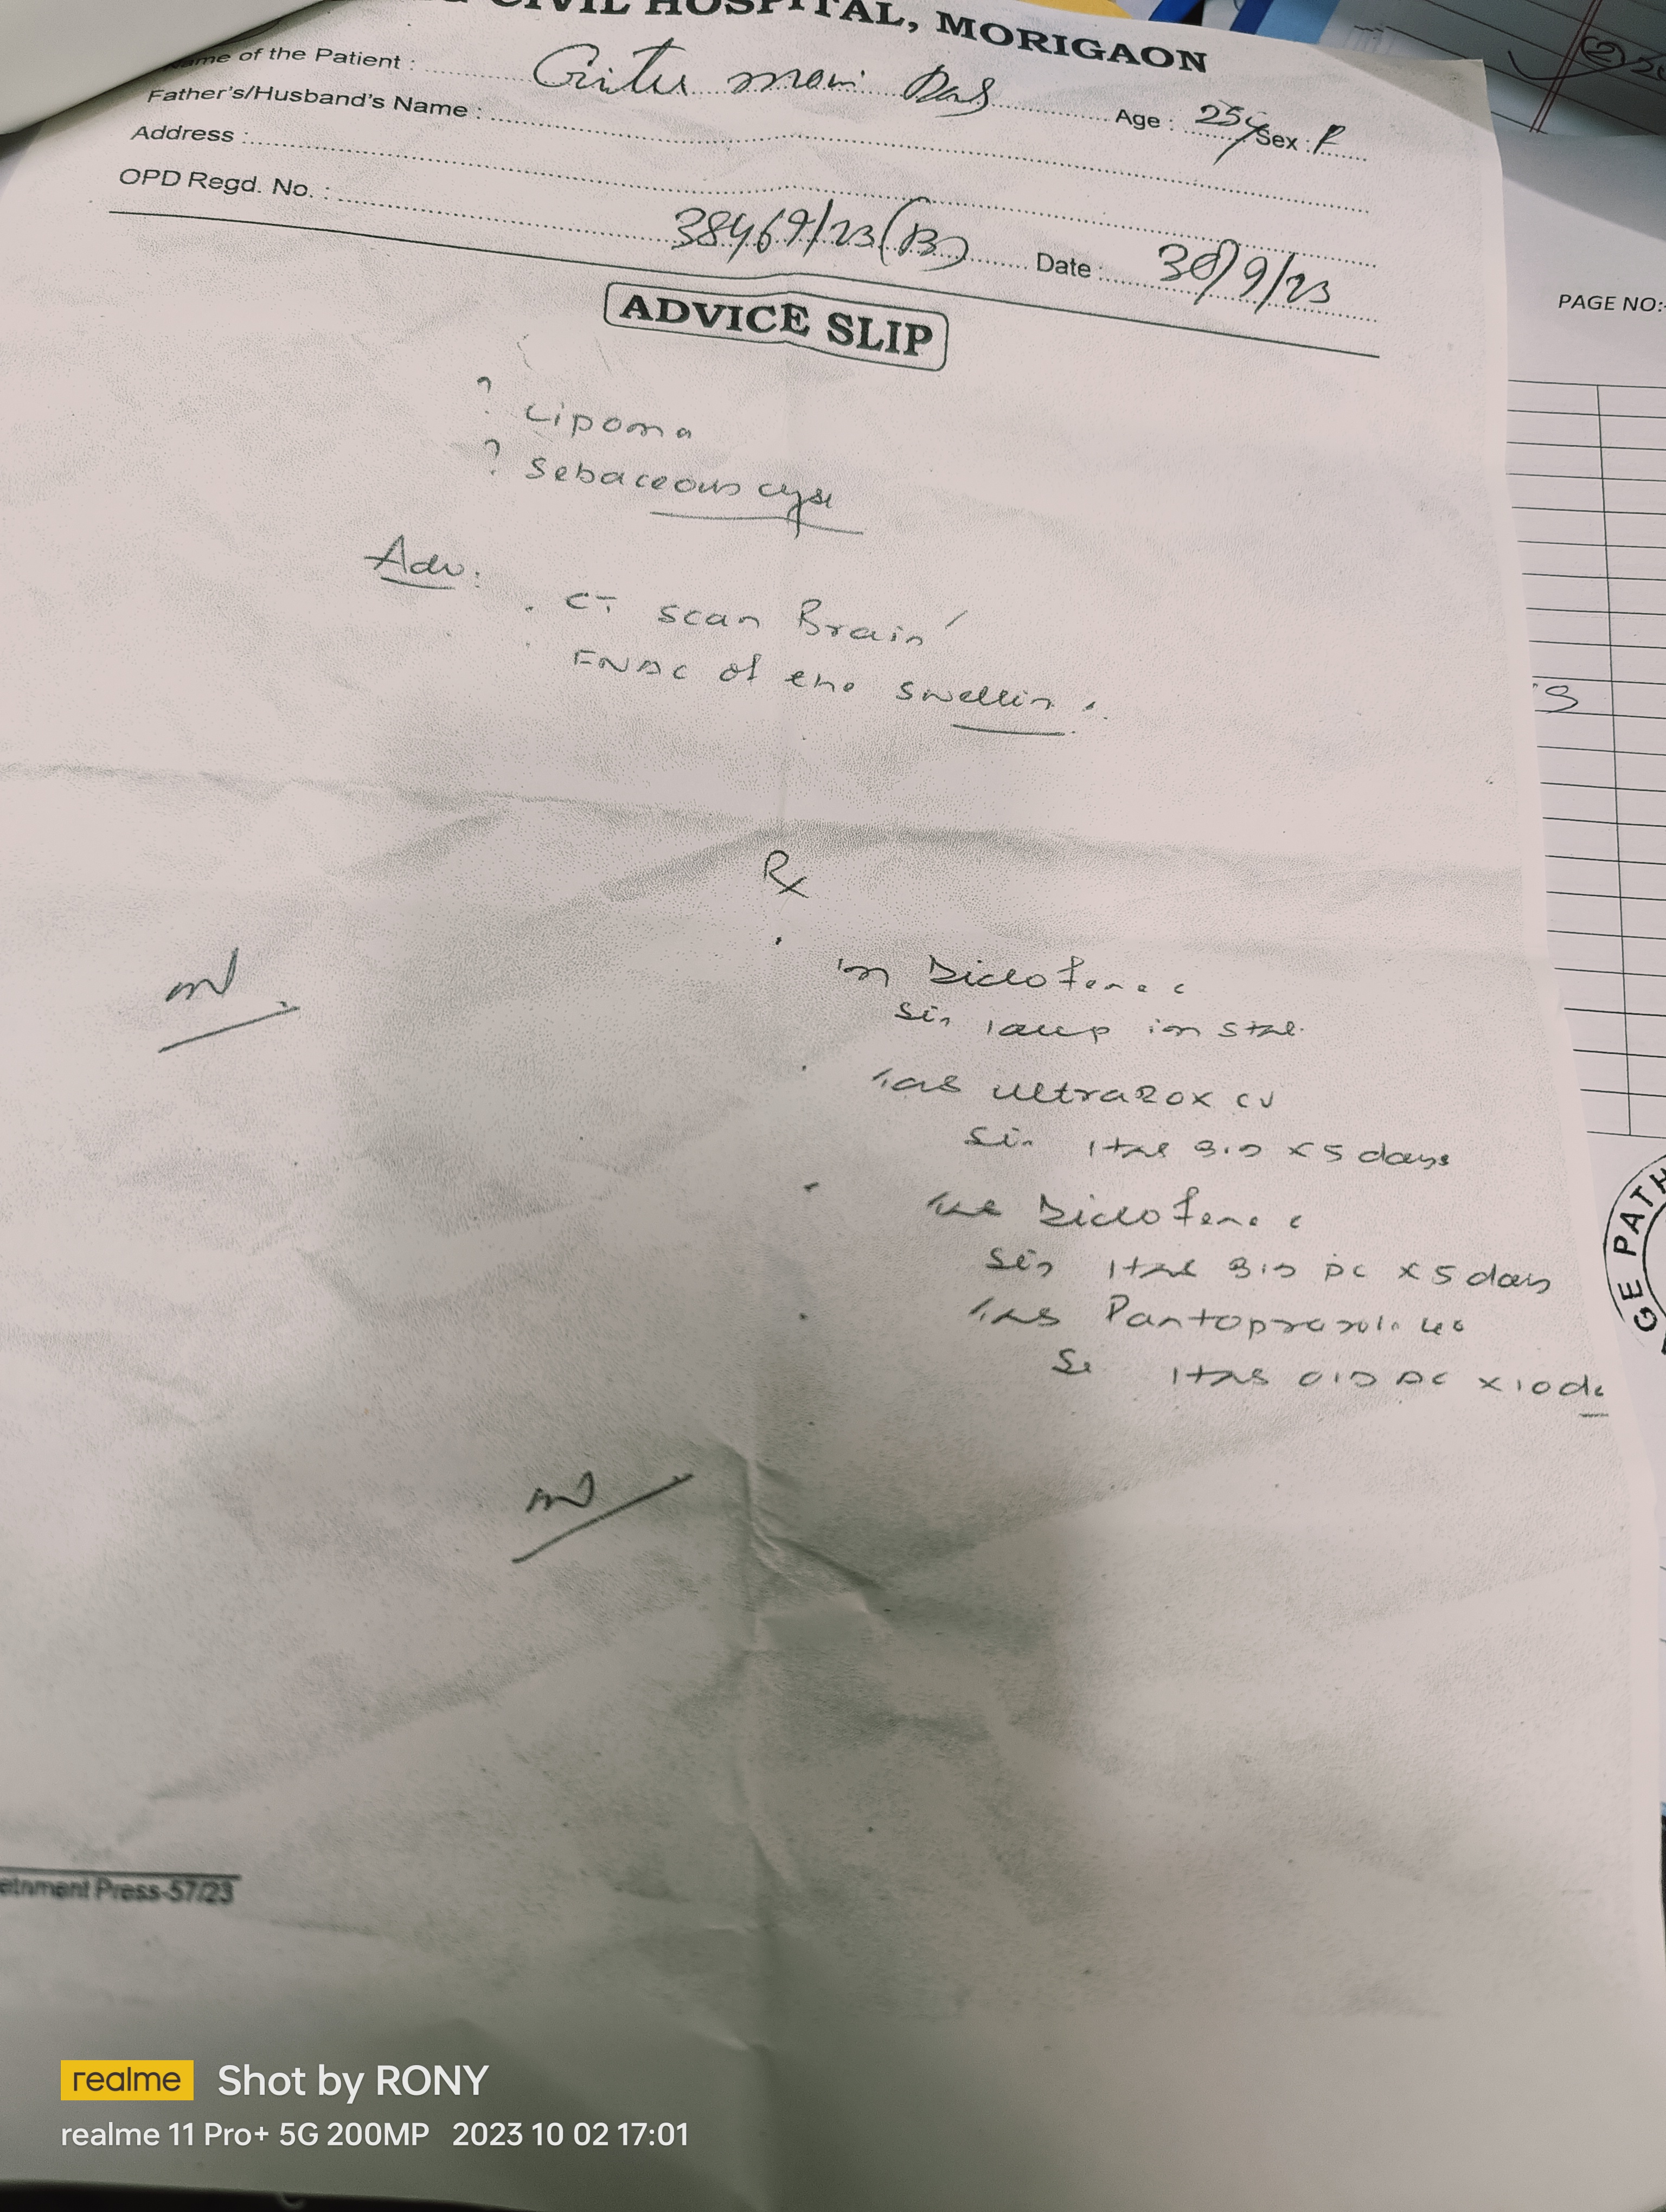 CIVIL HOSPITAL, MORIGAON
Name of the Patient : Gitu moni Das Age : 25y Sex : F
Father's/Husband's Name :
Address :
OPD Regd. No. : 38469/23(B) Date : 30/9/23
ADVICE SLIP
? Lipoma
? Sebaceous cyst
Adv:
. CT scan Brain
. FNAC of the swellin
Rx
. in Diclofenac
1 amp im stat
. Tab ultraRox cv
1 tab BID x 5 days
. Tab Diclofenac
1 tab BID PC x 5 days
. Tab Pantoprazole 40
1 tab OD AC x 10 d
etnment Press-57/23
PAGE NO:
GE PATH
realme Shot by RONY
realme 11 Pro+ 5G 200MP 2023 10 02 17:01